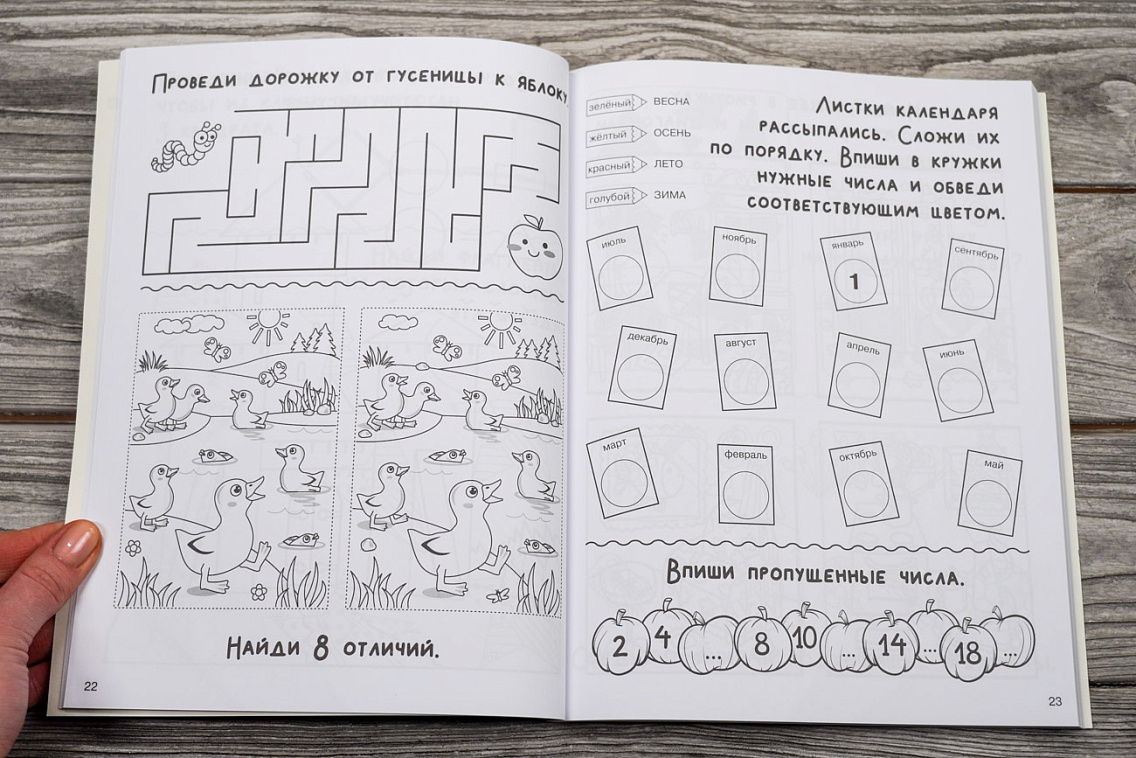 Проведи дорожку от гусеницы к яблоку.
Найди 8 отличий.
22
зелёный ВЕСНА
жёлтый ОСЕНЬ
красный ЛЕТО
голубой ЗИМА
Листки календаря
рассыпались. Сложи их
по порядку. Впиши в кружки
нужные числа и обведи
соответствующим цветом.
июль ноябрь январь сентябрь
1
декабрь август апрель июнь
март февраль октябрь май
Впиши пропущенные числа.
2 4 ... 8 10 ... 14 ... 18 ...
23